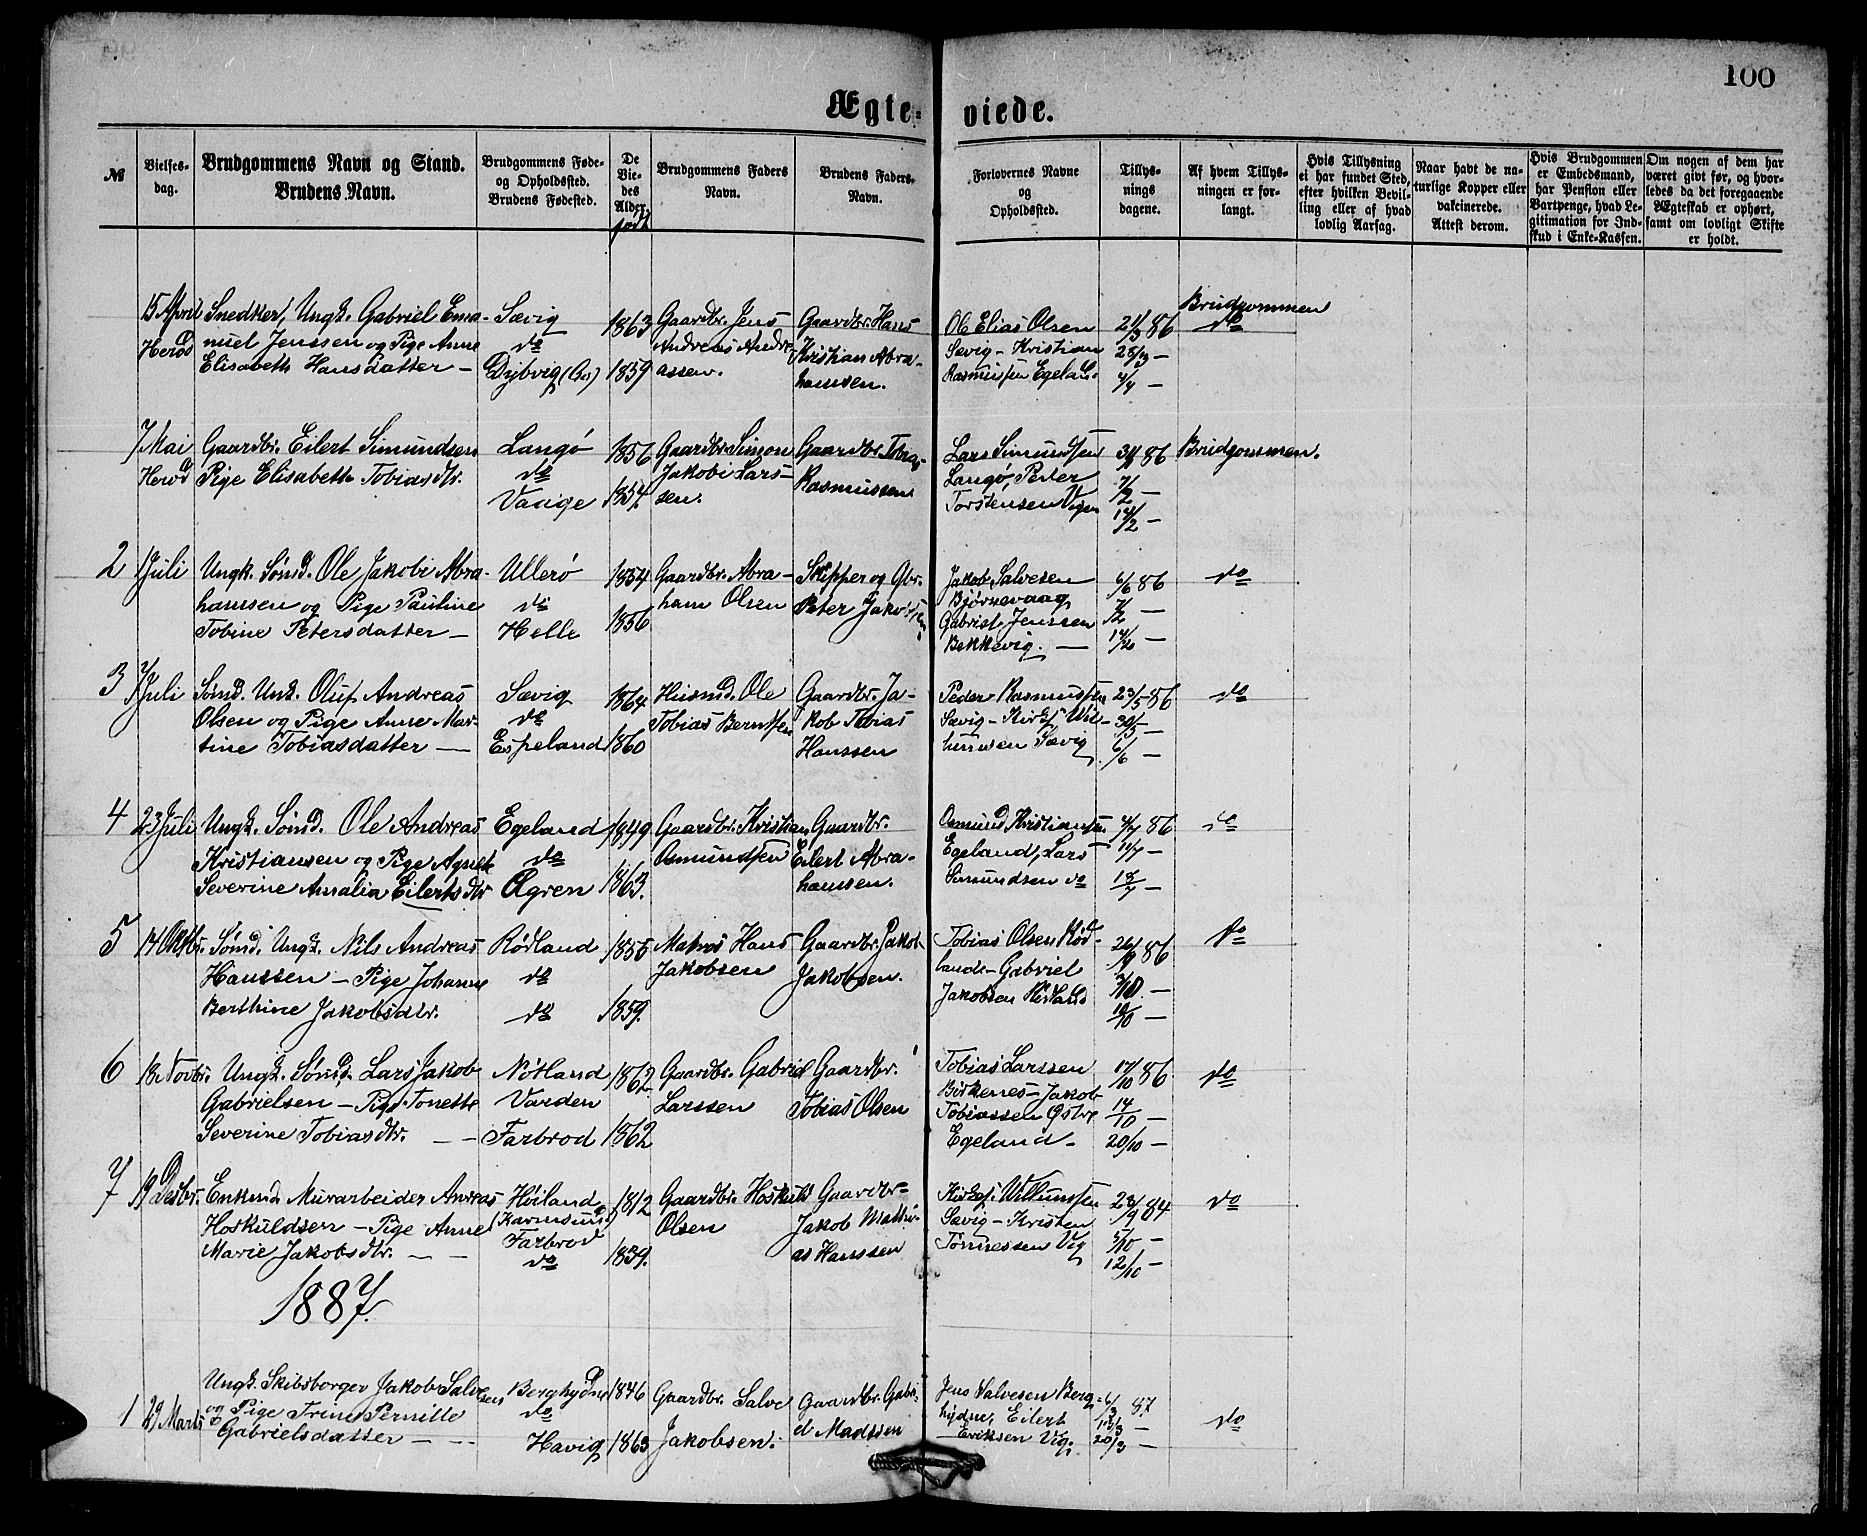 100
Ægte-viede.
№
Vielses-dag.
Brudgommens Navn og Stand.
Brudens Navn.
Brudgommens Føde-
og Opholdssted.
Brudens Fødested.
De
Vie-
des
Alder.
født
Brudgommens Faders
Navn.
Brudens Faders
Navn.
Forlovernes Navne
og
Opholdssted.
Tillys-
nings
dagene.
Af hvem Tillys-
ningen er for-
langt.
Hvis Tillysning
ei har fundet Sted,
efter hvilken Bevil-
ling eller af hvad
lovlig Aarsag.
Naar havt de na-
turlige Kopper eller
vakcinerede.
Attest derom.
Hvis Brudgommen
er Embedsmand,
har Pension eller
Vartpenge, hvad Le-
gitimation for Ind-
skud i Enke-Kassen.
Om nogen af dem har
været givt før, og hvor-
ledes da det foregaaende
Ægteskab er ophørt,
samt om lovligt Skifte
er holdt.
15 April
Herød
Snedker, Ungk. Gabriel Ema-
nuel Jenssen og Pige Anne
Elisabeth Hansdatter —
Sævig
do
Dybvig
1863
1859
Gaardbr. Jens
Andreas Andre-
assen.
Gaardbr. Hans
Kristian Abra-
hamsen.
Ole Elias Olsen
Sævig - Kristian
Rasmussen Egeland
21/3 86
28/3 —
4/4 —
Brudgommen
do
7 Mai
Herød
Gaardbr. Eilert Simundsen
Pige Elisabeth Tobiasdtr.
Langø
do
Vaage
1856
Gaardbr. Simon
Jakobi Lars-
sen.
Gaardbr. Tobias
Rasmussen
Lars Simundsen
Langø, Peder
Torstensen Vigen
86
7/2 —
14/2 —
Brudgommen.
2
1 Juli
Ungk. Sømd. Ole Jakobi Abra-
hamsen og Pige Pauline
Tobine Petersdatter —
Ullerø
do
Helle
1854
1856
Gaardbr. Abra-
ham Olsen
Skipper og Gbr.
Peter Jakobsen
Jakob Salvesen
Bjørnevaag
Gabriel Jenssen
Bekkevig. —
6/6 86
—
—
do
3
Juli
Sømd. Ungk. Oluf Andreas
Olsen og Pige Anne Mar-
tine Tobiasdatter —
Sævig
do
Espeland
1864
1860
Husmd. Ole
Tobias Berntsen
Gaardbr. Ja-
kob Tobias
Hanssen
Peder Rasmussen
Sævig - Kirkes. Wil-
lumsen Sævig
23/5 86
30/5 —
6/6 —
do
4
23 Juli
Ungk. Sømd. Ole Andreas
Kristiansen og Pige Agnete
Severine Amalia Eilertsdtr
Egeland
do
Øgren
1849
1863.
Gaardbr. Kristian
Osmundsen
Gaardbr.
Eilert Abra-
hamsen.
Osmund Kristiansen
Egeland, Lars
Simundsen do
4/7 86
11/7 —
18/7 —
do
5
14 Oktbr.
Sømd. Ungk. Nils Andreas
Hanssen — Pige Johanne
Berthine Jakobsdtr.
Rødland
do
do
1855
1859.
Matros Hans
Jakobsen
Gaardbr. Jakob
Jakobsen.
Tobias Olsen Rød-
land - Gabriel
Jakobsen Rødland
26/9 86
3/10 —
10/10 —
do
6
18 Novbr.
Ungk. Sømd. Lars Jakob
Gabrielsen — Pige Tonette
Severine Tobiasdtr. — —
Nøtland
Varden
Farbrod
1862
1862
Gaardbr. Gabriel
Larssen
Gaardbr.
Tobias Olsen
Tobias Larssen
Birkenes - Jakob
Tobiassen Østre
Egeland -
86
14/10 —
20/10 —
do
7
19 Desbr.
Enkmd. Murarbeider Andreas
Hoskuldsen — Pige Anne
Marie Jakobsdtr. — —
Høiland
(Karmsund)
Farbrod
do
1812
1839.
Gaardbr. Hoskuld
Olsen
Gaardbr-
Jakob Mathi-
as Hanssen
Kirkes. Willumsen
Sævig - Kristen
Tønnessen Vig
28/9 84
5/10 —
12/10 —
do
1887.
1
29 Marts
Ungk. Skibsborger Jakob Salve-
sen
og Pige Trine Pernille
Gabrielsdatter — -
Berghydne
do
Havig
1846
1863
Gaardbr. Salve
Jakobsen.
Gaardbr. Gabri-
el Madssen
Jens Salvesen Berg-
hydne, Eilert
Eriksen Vig.
6/3 87
13/3 —
20/3 —
do